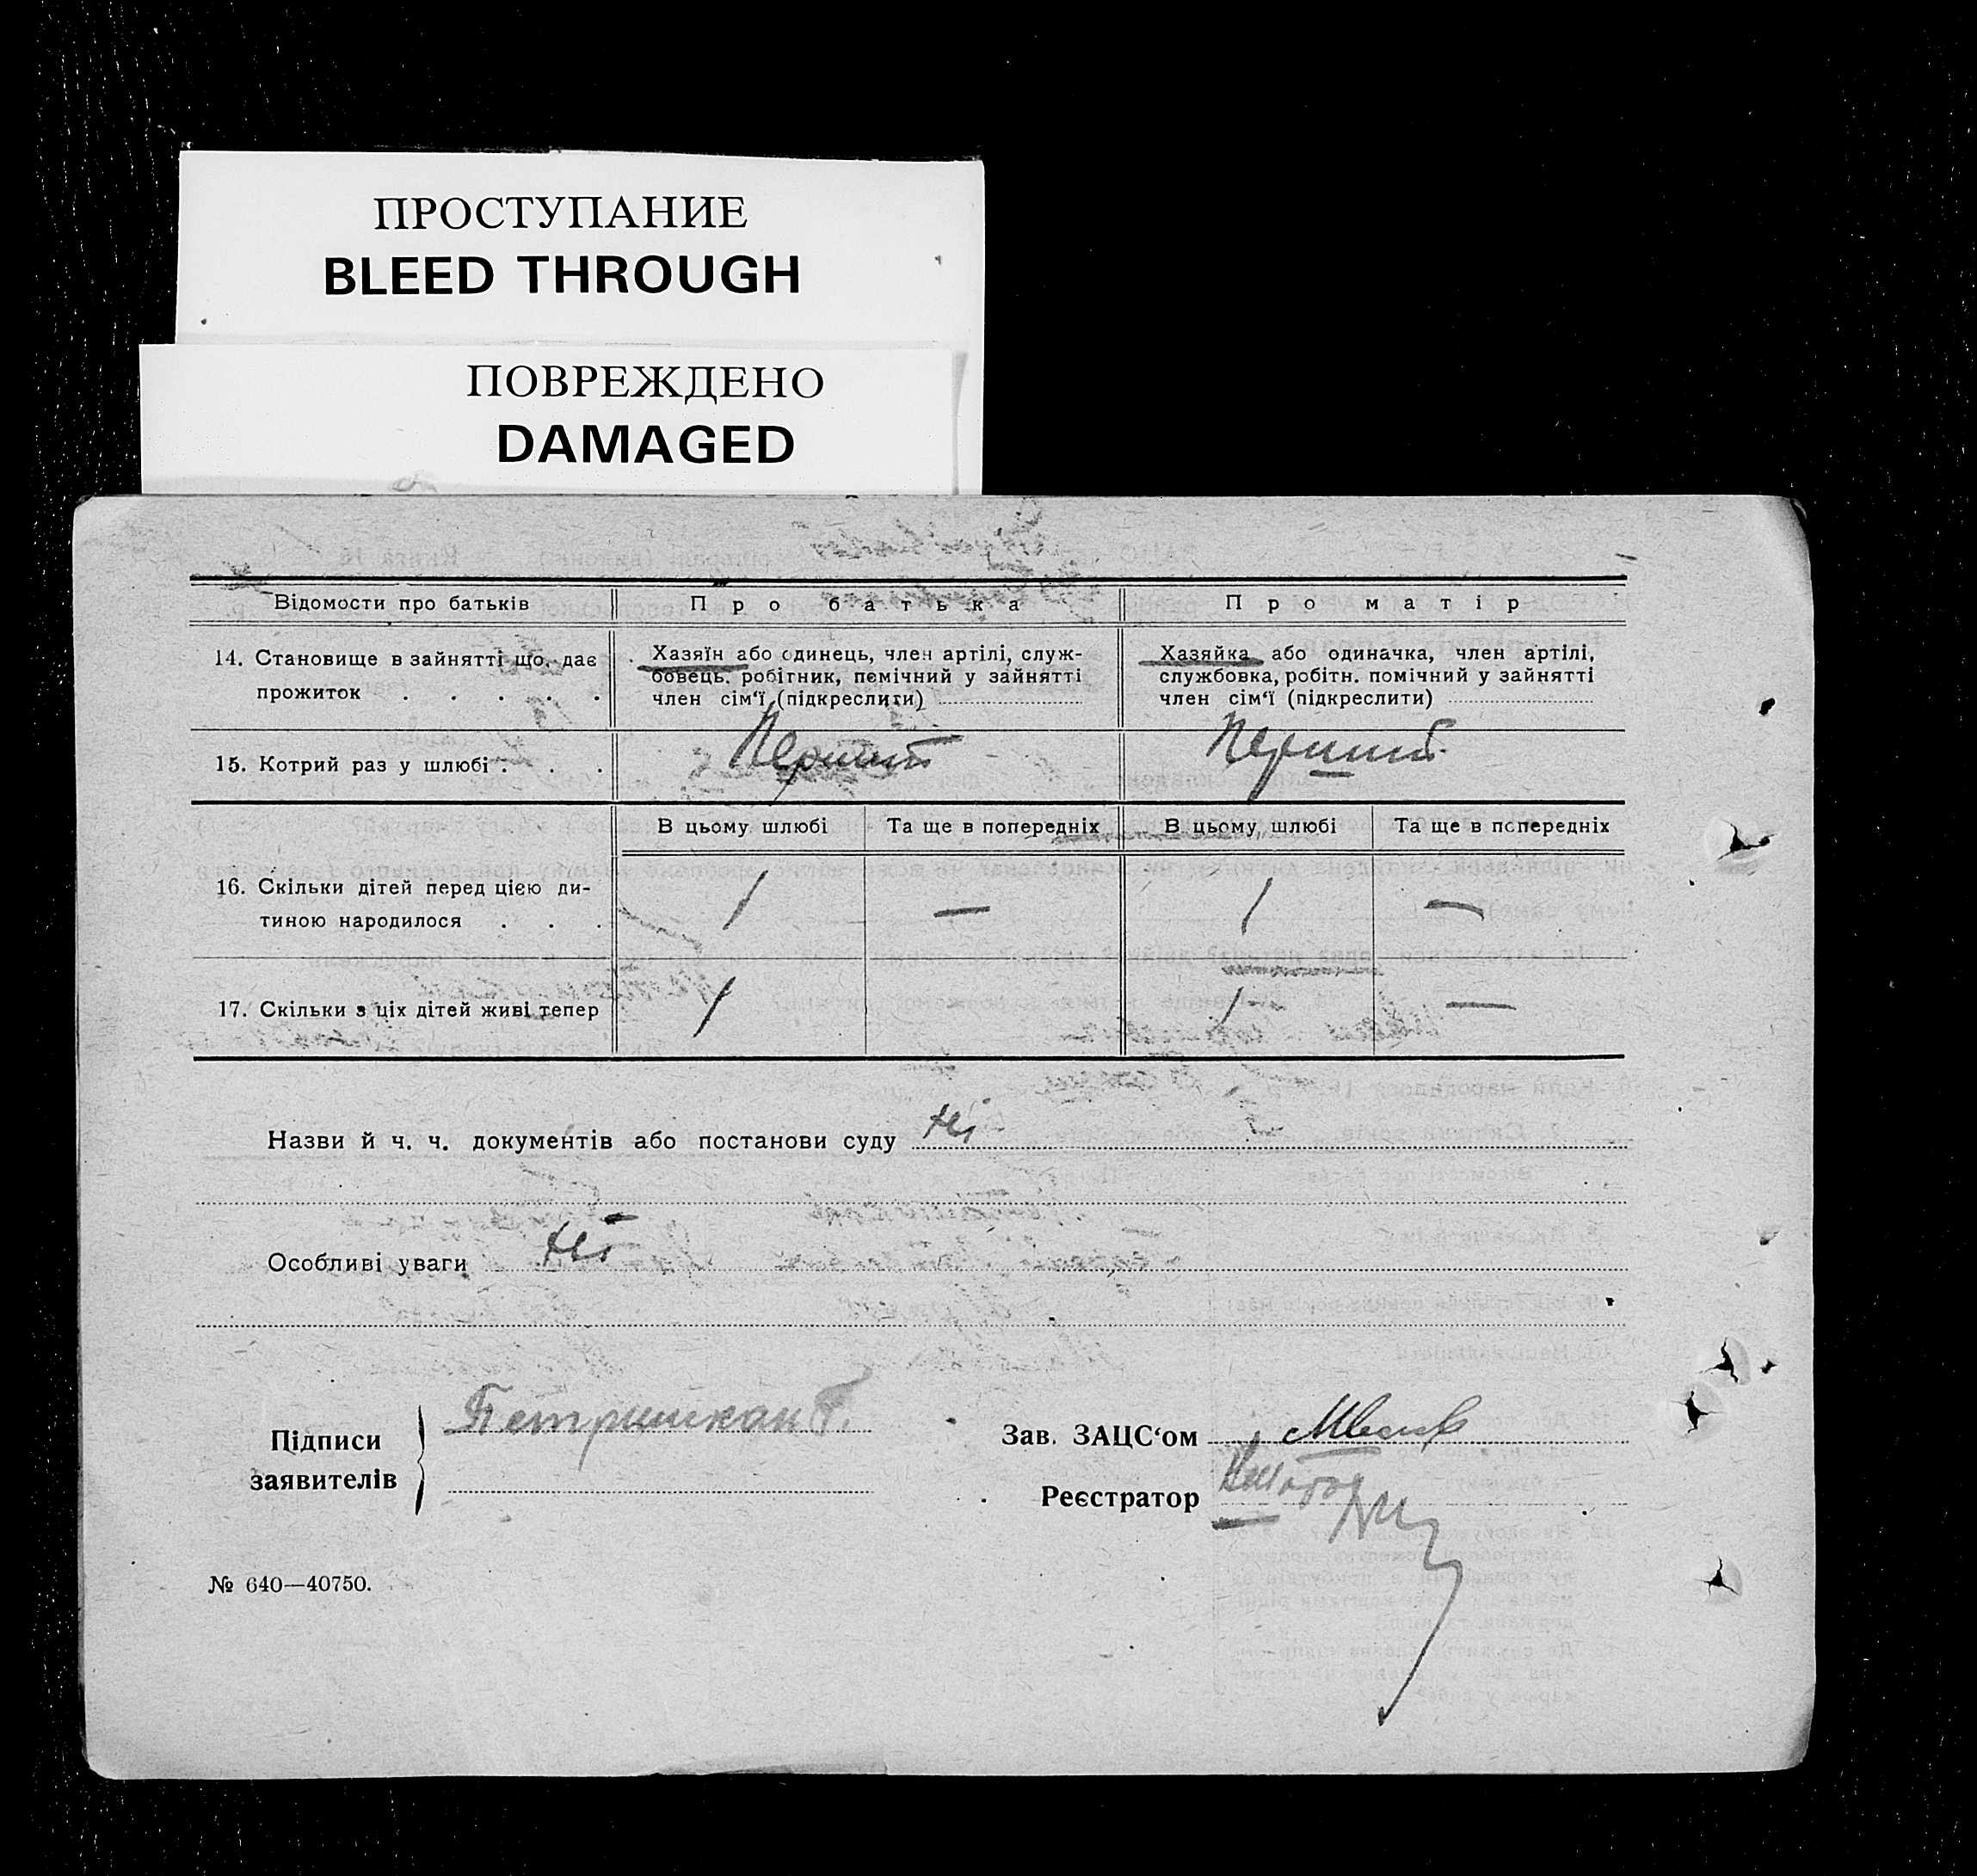 ПРОСТУПАНИЕ
BLEED THROUGH
ПОВРЕЖДЕНО
DAMAGED
Відомости про батьків
Про батька
Про матір
14. Становище в зайнятті що, дає
прожиток . . . . .
Хазяїн або одинець, член артілі, служ-
бовець, робітник, пемічний у зайнятті
член сім‘ї (підкреслити)
Хазяйка або одиначка, член артілі,
службовка, робітн. помічний у зайнятті
член сім‘ї (підкреслити)
15. Котрий раз у шлюбі . . .
Перший
Перший
В цьому шлюбі
Та ще в попередніх
В цьому шлюбі
Та ще в попередніх
16. Скільки дітей перед цією ди-
тиною народилося . . .
1
—
1
—
17. Скільки з ціх дітей живі тепер
1
1
—
Назви й ч. ч. документів або постанови суду Ні
Особливі уваги Ні
Підписи
заявителів
Зав. ЗАЦС‘ом
Реєстратор
№ 640—40750.